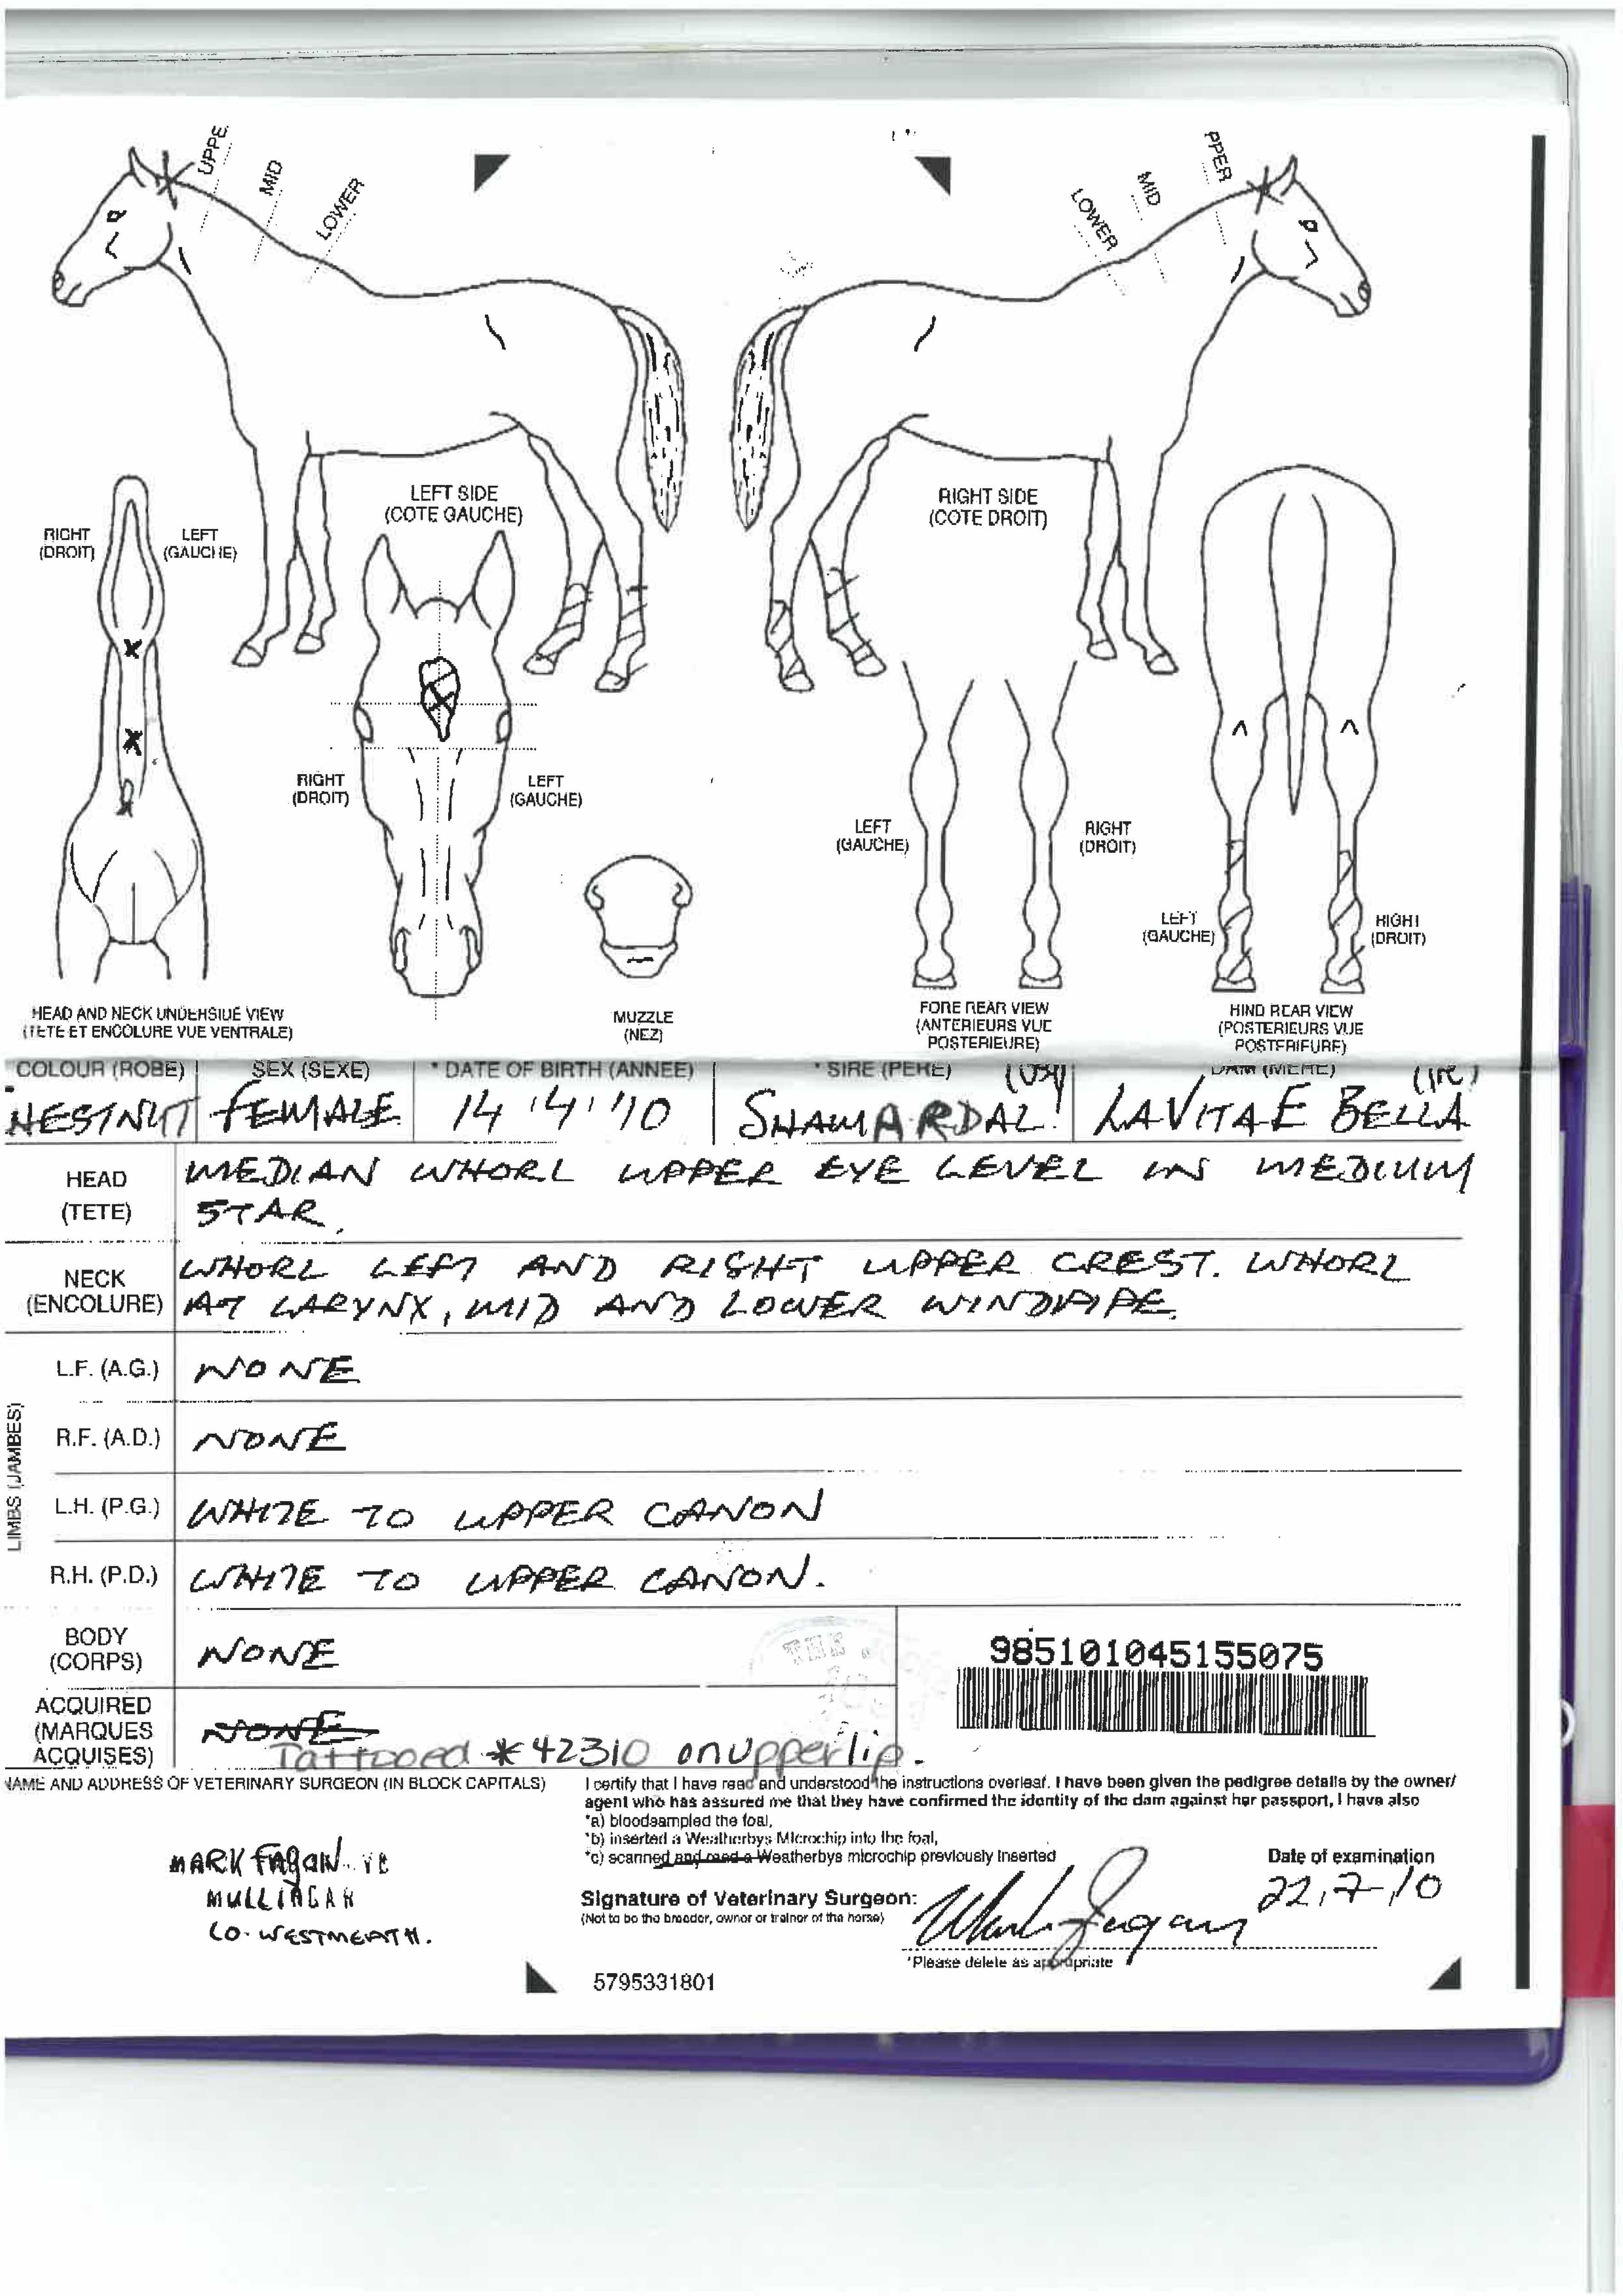 UPPE
MID
LOWER
LOWER
MID
PPER
LEFT SIDE
(COTE GAUCHE)
RIGHT SIDE
(COTE DROIT)
RIGHT
(DROIT)
LEFT
(GAUCHE)
RIGHT
(DROIT)
LEFT
(GAUCHE)
LEFT
(GAUCHE)
RIGHT
(DROIT)
LEFT
(GAUCHE)
RIGHT
(DROIT)
HEAD AND NECK UNDERSIDE VIEW
(TETE ET ENCOLURE VUE VENTRALE)
MUZZLE
(NEZ)
FORE REAR VIEW
(ANTERIEURS VUE
POSTERIEURE)
HIND REAR VIEW
(POSTERIEURS VUE
POSTERIEURE)
COLOUR (ROBE) SEX (SEXE) * DATE OF BIRTH (ANNEE) * SIRE (PERE) (USA) DAM (MERE) (IRE)
HESTNUT FEMALE 14 '4' '10 SHAMARDAL LA VITA E BELLA
HEAD
(TETE)
MEDIAN WHORL UPPER EYE LEVEL IN MEDIUM
STAR.
NECK
(ENCOLURE)
WHORL LEFT AND RIGHT UPPER CREST. WHORL
AT LARYNX, MID AND LOWER WINDPIPE.
LIMBS (JAMBES)
L.F. (A.G.) NONE
R.F. (A.D.) NONE
L.H. (P.G.) WHITE TO UPPER CANON
R.H. (P.D.) WHITE TO UPPER CANON.
BODY
(CORPS)
NONE
THE
985101045155075
ACQUIRED
(MARQUES
ACQUISES)
NONE
Tattooed *42310 on upper lip.
NAME AND ADDRESS OF VETERINARY SURGEON (IN BLOCK CAPITALS)
MARK FAGAN
MULLINGAR
CO. WESTMEATH.
I certify that I have read and understood the instructions overleaf. I have been given the pedigree details by the owner/
agent who has assured me that they have confirmed the identity of the dam against her passport, I have also
*a) bloodsampled the foal,
*b) inserted a Weatherbys Microchip into the foal,
*c) scanned and read a Weatherbys microchip previously inserted
Date of examination
22,7,10
Signature of Veterinary Surgeon:
(Not to be the breeder, owner or trainer of the horse)
Mark Fagan
*Please delete as appropriate
5795331801